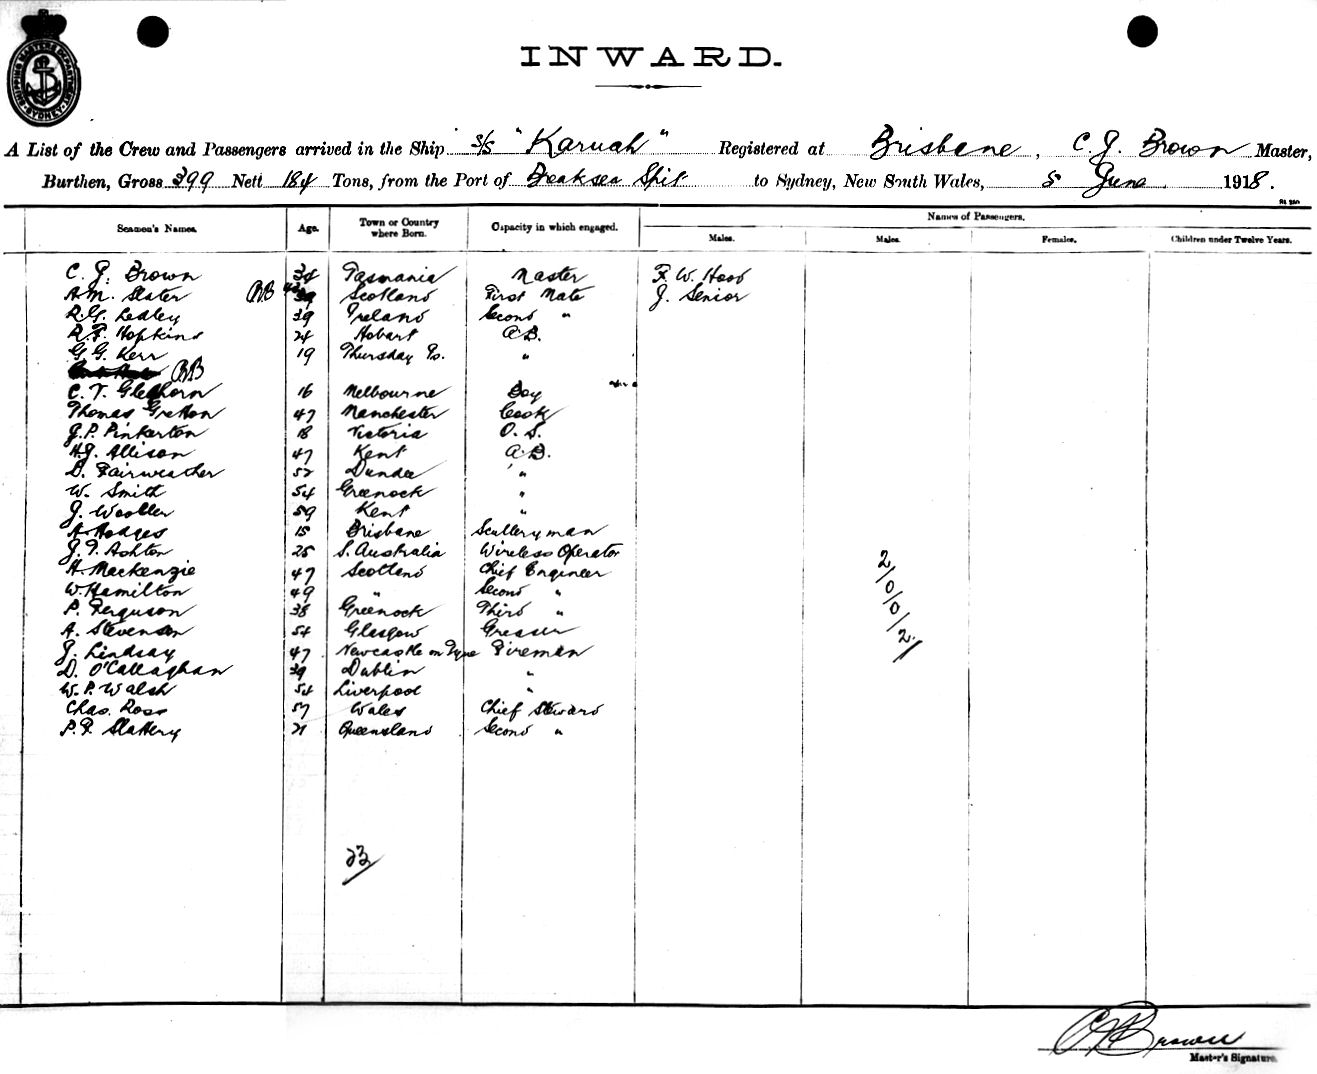 SHIPPING MASTER'S DEPARTMENT SYDNEY
INWARD.
A List of the Crew and Passengers arrived in the Ship S/S "Karuah" Registered at Brisbane, C. J. Brown Master,
Burthen, Gross 399 Nett 184 Tons, from the Port of Breaksea Spit to Sydney, New South Wales, 5 June 1918.
Seamen's Names. Age. Town or Country where Born. Capacity in which engaged. Names of Passengers.
Males. Males. Females. Children under Twelve Years.
C. J. Brown 34 Tasmania Master F. W. Hood
A. M. Slater Scotland First Mate J. Senior
R. G. Ledley 39 Ireland Second "
R. F. Hopkins 24 Hobart A.B.
G. G. Kerr 19 Thursday Is. "
C. T. Gleghorn 16 Melbourne Boy
Thomas Gretton 47 Manchester Cook
J. P. Pinkerton 18 Victoria O. S.
H. J. Allison 47 Kent A.B.
D. Fairweather 52 Dundee "
W. Smith 54 Greenock "
J. Wooller 59 Kent "
A. Hodges 15 Brisbane Sculleryman
J. T. Ashton 25 S. Australia Wireless Operator
H. Mackenzie 47 Scotland Chief Engineer
W. Hamilton 49 " Second "
P. Ferguson 38 Greenock Third "
A. Stevenson 54 Glasgow Greaser
J. Lindsay 47 Newcastle on Tyne Fireman
D. O'Callaghan 39 Dublin "
W. P. Walsh 54 Liverpool "
Chas. Ross 57 Wales Chief Steward
P. F. Slattery 21 Queensland Second "
2/0/0/2/
23
C J Brown
Master's Signature.